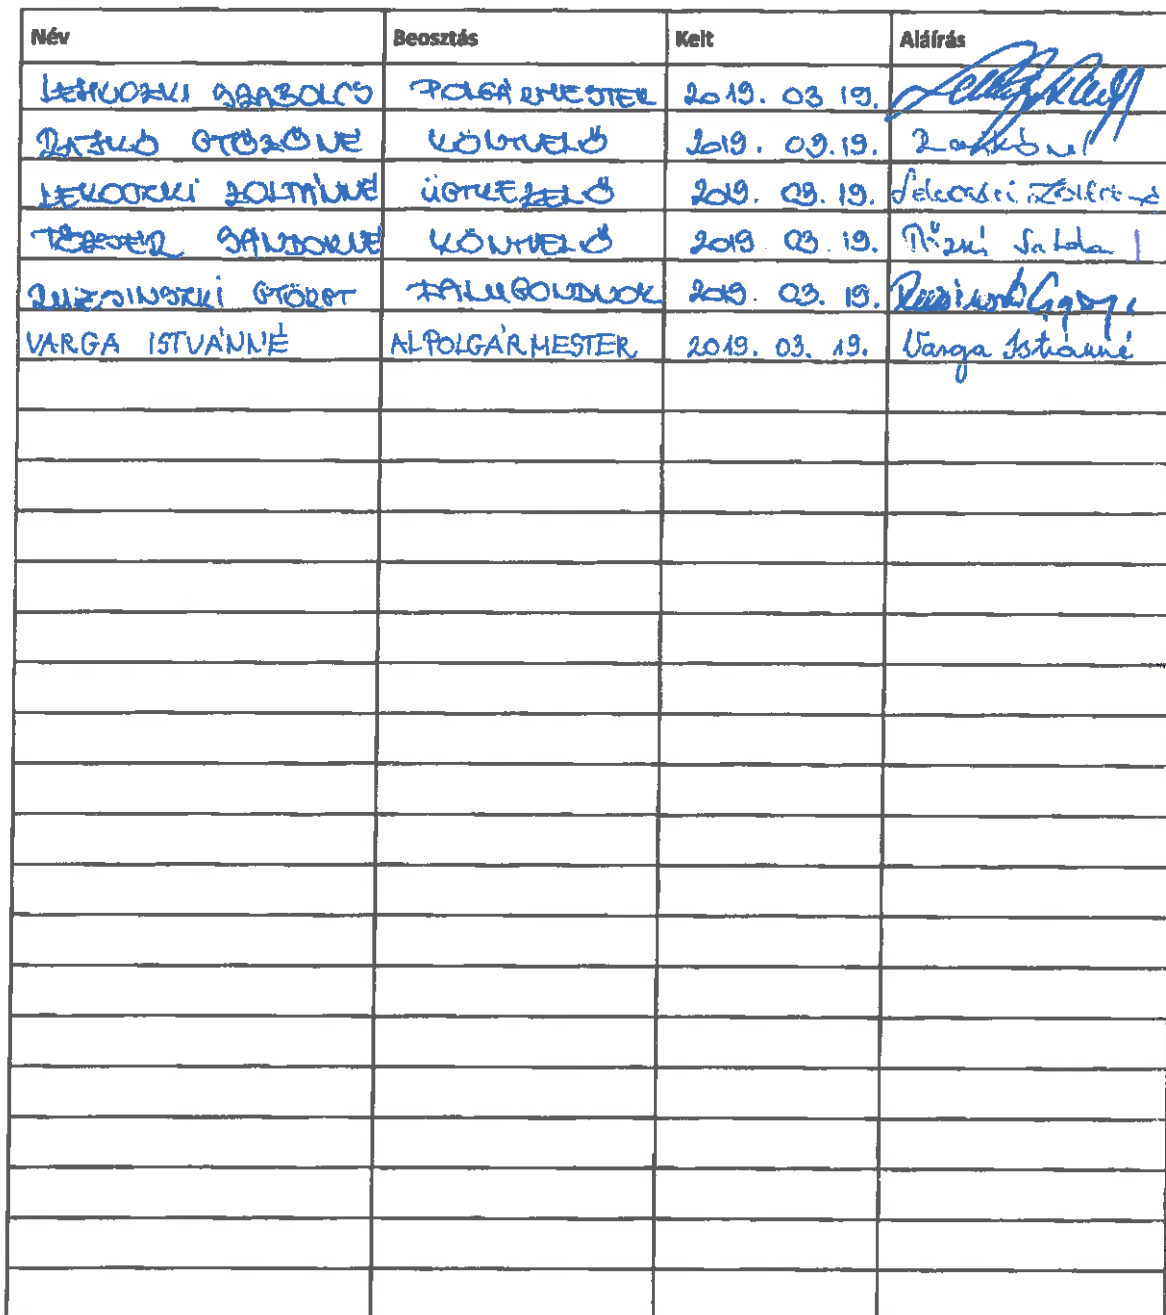 Név Beosztás Kelt Aláírás
LEHUCZKI SZABOLCS POLGÁRMESTER 2019. 03 19.
RATKÓ GYŐZŐNÉ KÖNYVELŐ 2019. 03. 19.
ZOLTÁNNÉ ÜGYKEZELŐ 2019. 03. 19.
TŐZSÉR SÁNDORNÉ KÖNYVELŐ 2019 03. 19.
RUZSINSZKI GYÖRGY FALUGONDNOK 2019. 03. 19.
VARGA ISTVÁNNÉ ALPOLGÁRMESTER 2019. 03. 19. Varga Istvánné